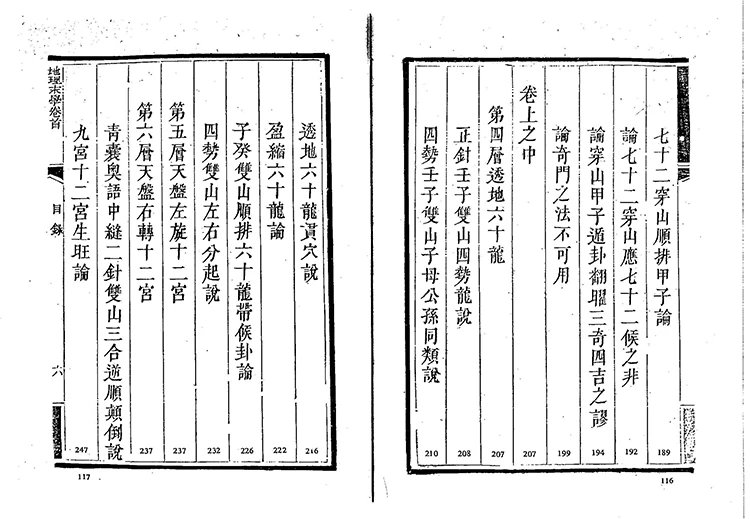 七十二穿山順排甲子論 189
論七十二穿山應七十二候之非 192
論穿山甲子遁卦翻曜三奇四吉之謬 194
論奇門之法不可用 199
卷上之中 207
第四層透地六十龍 207
正針壬子雙山四勢龍說 208
四勢壬子雙山子母公孫同類說 210
116
透地六十龍貫穴說 216
盈縮六十龍論 222
子癸雙山順排六十龍帶候卦論 226
四勢雙山左右分起說 232
第五層天盤左旋十二宮 237
第六層天盤右轉十二宮 237
青囊奧語中縫二針雙山三合逆順顛倒說
九宮十二宮生旺論 247
地理末學卷首
目錄
六
117